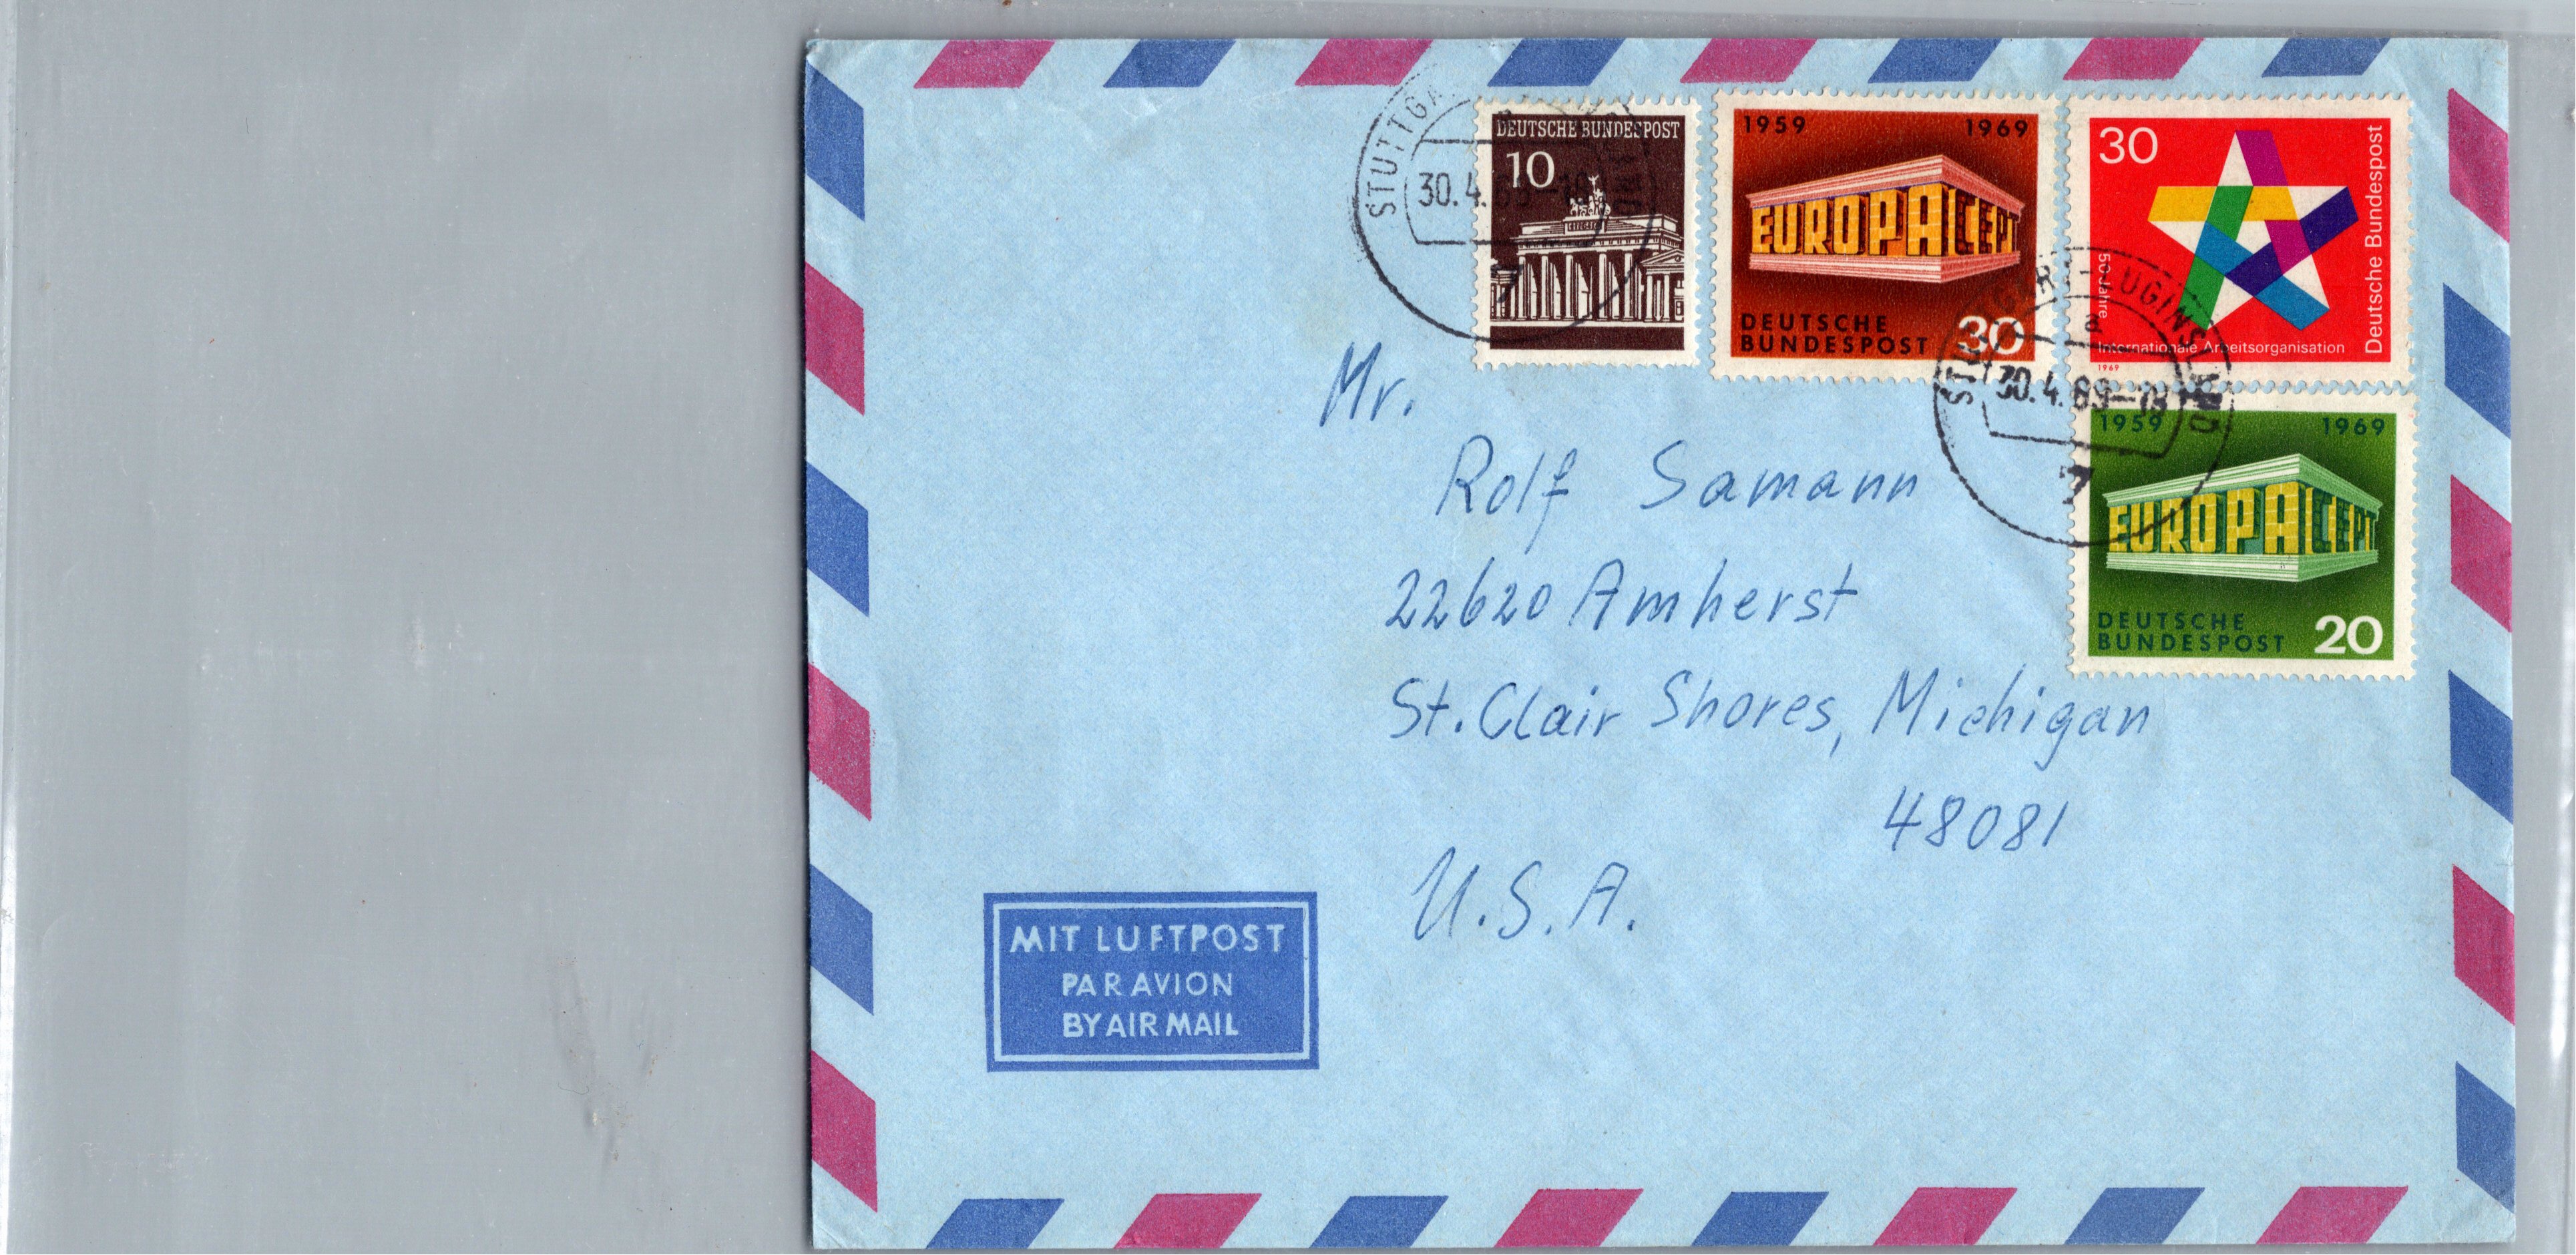 STUTTGA
30.4.6
7
DEUTSCHE BUNDESPOST
10
1959 1969
EUROPA CEPT
DEUTSCHE
BUNDESPOST 30
30
Deutsche Bundespost
50 Jahre
Internationale Arbeitsorganisation
1969
STUTTGART-LUGINSLAND
a
30.4.69-18
7
1959 1969
EUROPA CEPT
DEUTSCHE
BUNDESPOST 20
Mr.
Rolf Samann
22620 Amherst
St. Clair Shores, Michigan
48081
U.S.A.
MIT LUFTPOST
PAR AVION
BY AIR MAIL